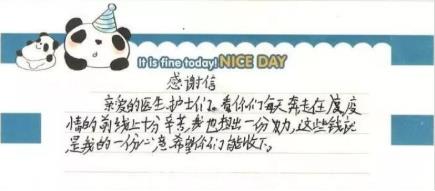 It is fine today! NICE DAY
感谢信
亲爱的医生、护士们。看你们每天奔走在
情的前线上十分辛苦,我也想出一份力,这些钱就
是我的一份心意,希望你们能收下。